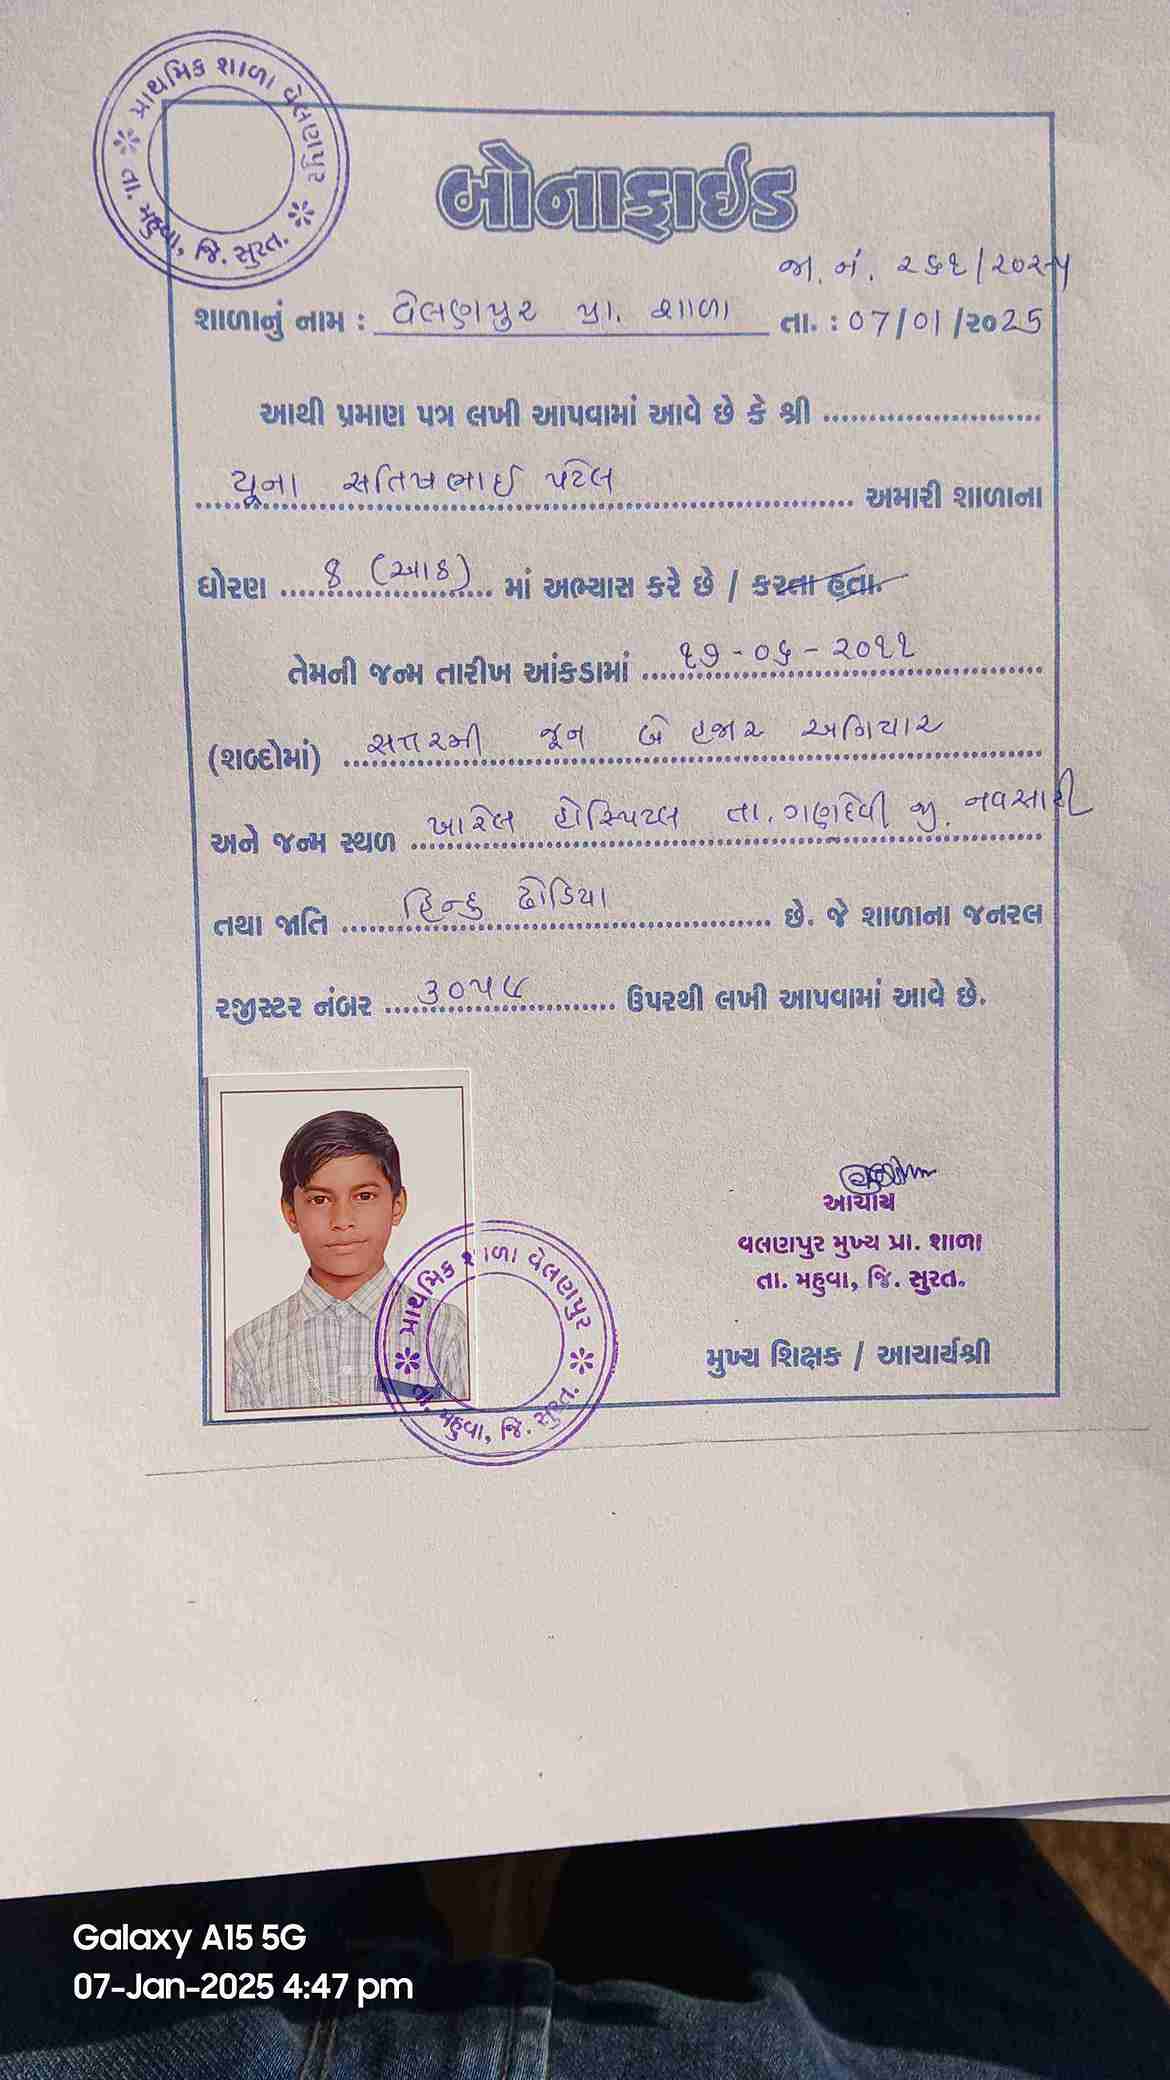 પ્રાથમિક શાળા વેલણપુર
તા. મહુવા, જિ. સુરત.
બોનાફાઈડ
જા. નં. ૨૬૧/૨૦૨૫
શાળાનું નામ : વેલણપુર પ્રા. શાળા તા. : 07/01/૨૦25
આથી પ્રમાણ પત્ર લખી આપવામાં આવે છે કે શ્રી
સતિષભાઈ પટેલ અમારી શાળાના
ધોરણ ૮ (આઠ) માં અભ્યાસ કરે છે / કરતા હતા.
તેમની જન્મ તારીખ આંકડામાં ૧૭-૦૬-૨૦૧૧
(શબ્દોમાં) સત્તરમી જૂન બે હજાર અગિયાર
અને જન્મ સ્થળ ખારેલ હોસ્પિટલ તા. ગણદેવી જી. નવસારી
તથા જાતિ હિન્દુ ઢોડિયા છે. જે શાળાના જનરલ
રજીસ્ટર નંબર ૩૦૫૪ ઉપરથી લખી આપવામાં આવે છે.
આચાર્ય
વલણપુર મુખ્ય પ્રા. શાળા
તા. મહુવા, જિ. સુરત.
મુખ્ય શિક્ષક / આચાર્યશ્રી
પ્રાથમિક શાળા વેલણપુર
તા. મહુવા, જિ. સુરત.
Galaxy A15 5G
07-Jan-2025 4:47 pm